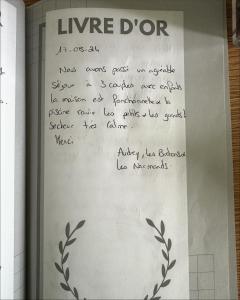 LIVRE D'OR
17-08-24
Nous avons passé un agréable
séjour à 3 couples avec enfants
la maison est fonctionnelle la
piscine ravie les petits & les grands !
Secteur très calme.
Merci
Audrey, les
les Normands